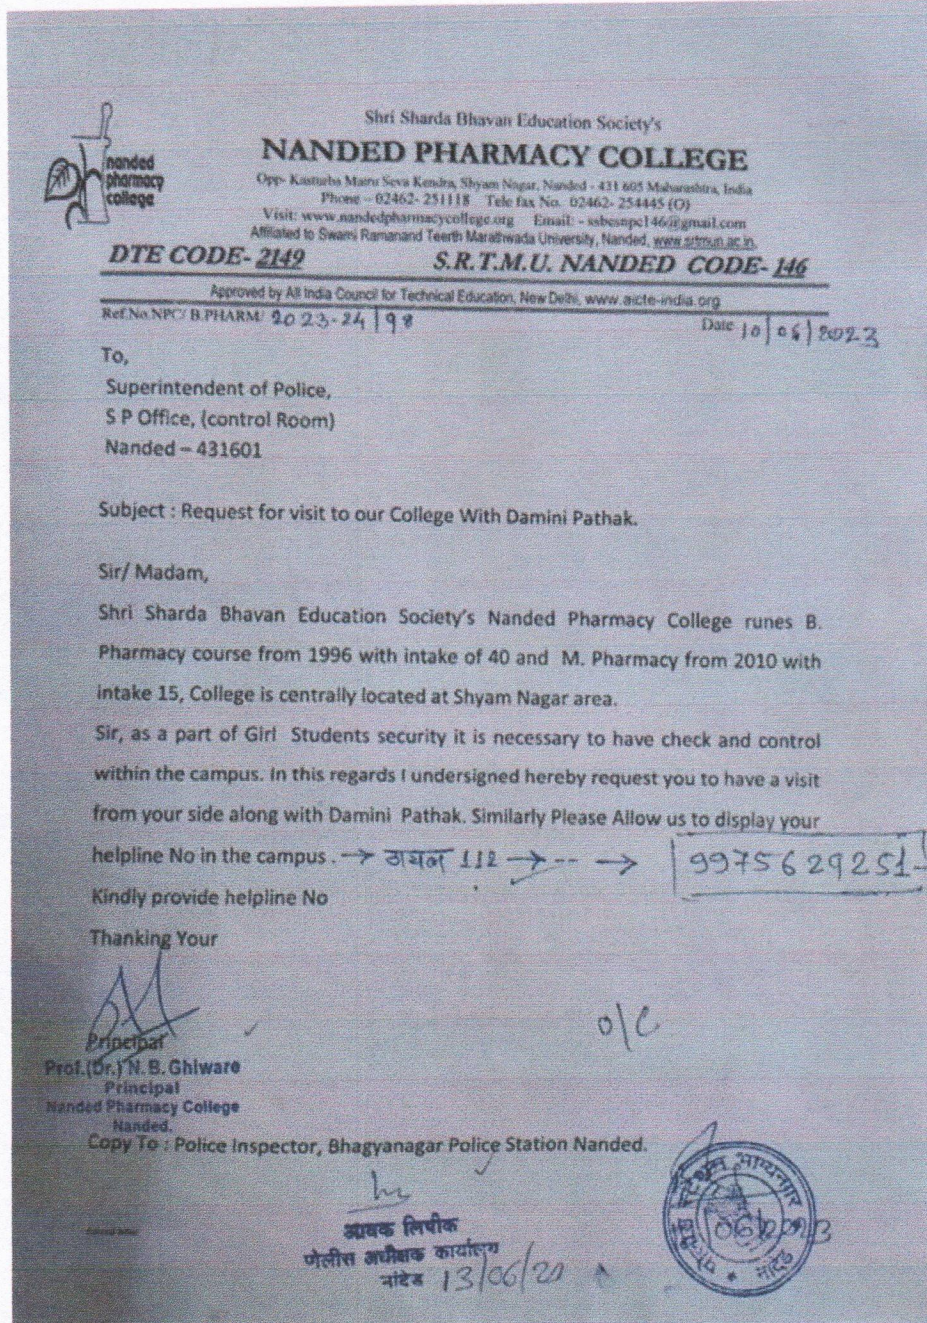 Shri Sharda Bhavan Education Society's
nanded
pharmacy
college
NANDED PHARMACY COLLEGE
Opp- Kasturba Matru Seva Kendra, Shyam Nagar, Nanded - 431 605 Maharashtra, India
Phone – 02462- 251118 Tele fax No. 02462- 254445 (O)
Visit: www.nandedpharmacycollege.org Email: - ssbesnpc146@gmail.com
Affiliated to Swami Ramanand Teerth Marathwada University, Nanded, www.srtmun.ac.in,
DTE CODE- 2149 S.R.T.M.U. NANDED CODE- 146
Approved by All India Council for Technical Education, New Delhi, www.aicte-india.org
Ref.No.NPC/ B.PHARM/ 2023-24|98 Date 10|06|2023
To,
Superintendent of Police,
S P Office, (control Room)
Nanded – 431601
Subject : Request for visit to our College With Damini Pathak.
Sir/ Madam,
Shri Sharda Bhavan Education Society's Nanded Pharmacy College runes B.
Pharmacy course from 1996 with intake of 40 and M. Pharmacy from 2010 with
intake 15, College is centrally located at Shyam Nagar area.
Sir, as a part of Girl Students security it is necessary to have check and control
within the campus. In this regards I undersigned hereby request you to have a visit
from your side along with Damini Pathak. Similarly Please Allow us to display your
helpline No in the campus . → डायल 112 → -- → 9975629251
Kindly provide helpline No
Thanking Your
O/C
Principal
Prof.(Dr.) N. B. Ghiware
Principal
Nanded Pharmacy College
Nanded.
Copy To : Police Inspector, Bhagyanagar Police Station Nanded.
आवक लिपीक
पोलीस अधीक्षक कार्यालय
नांदेड 13/06/20
पोलीस स्टेशन भाग्यनगर
नांदेड